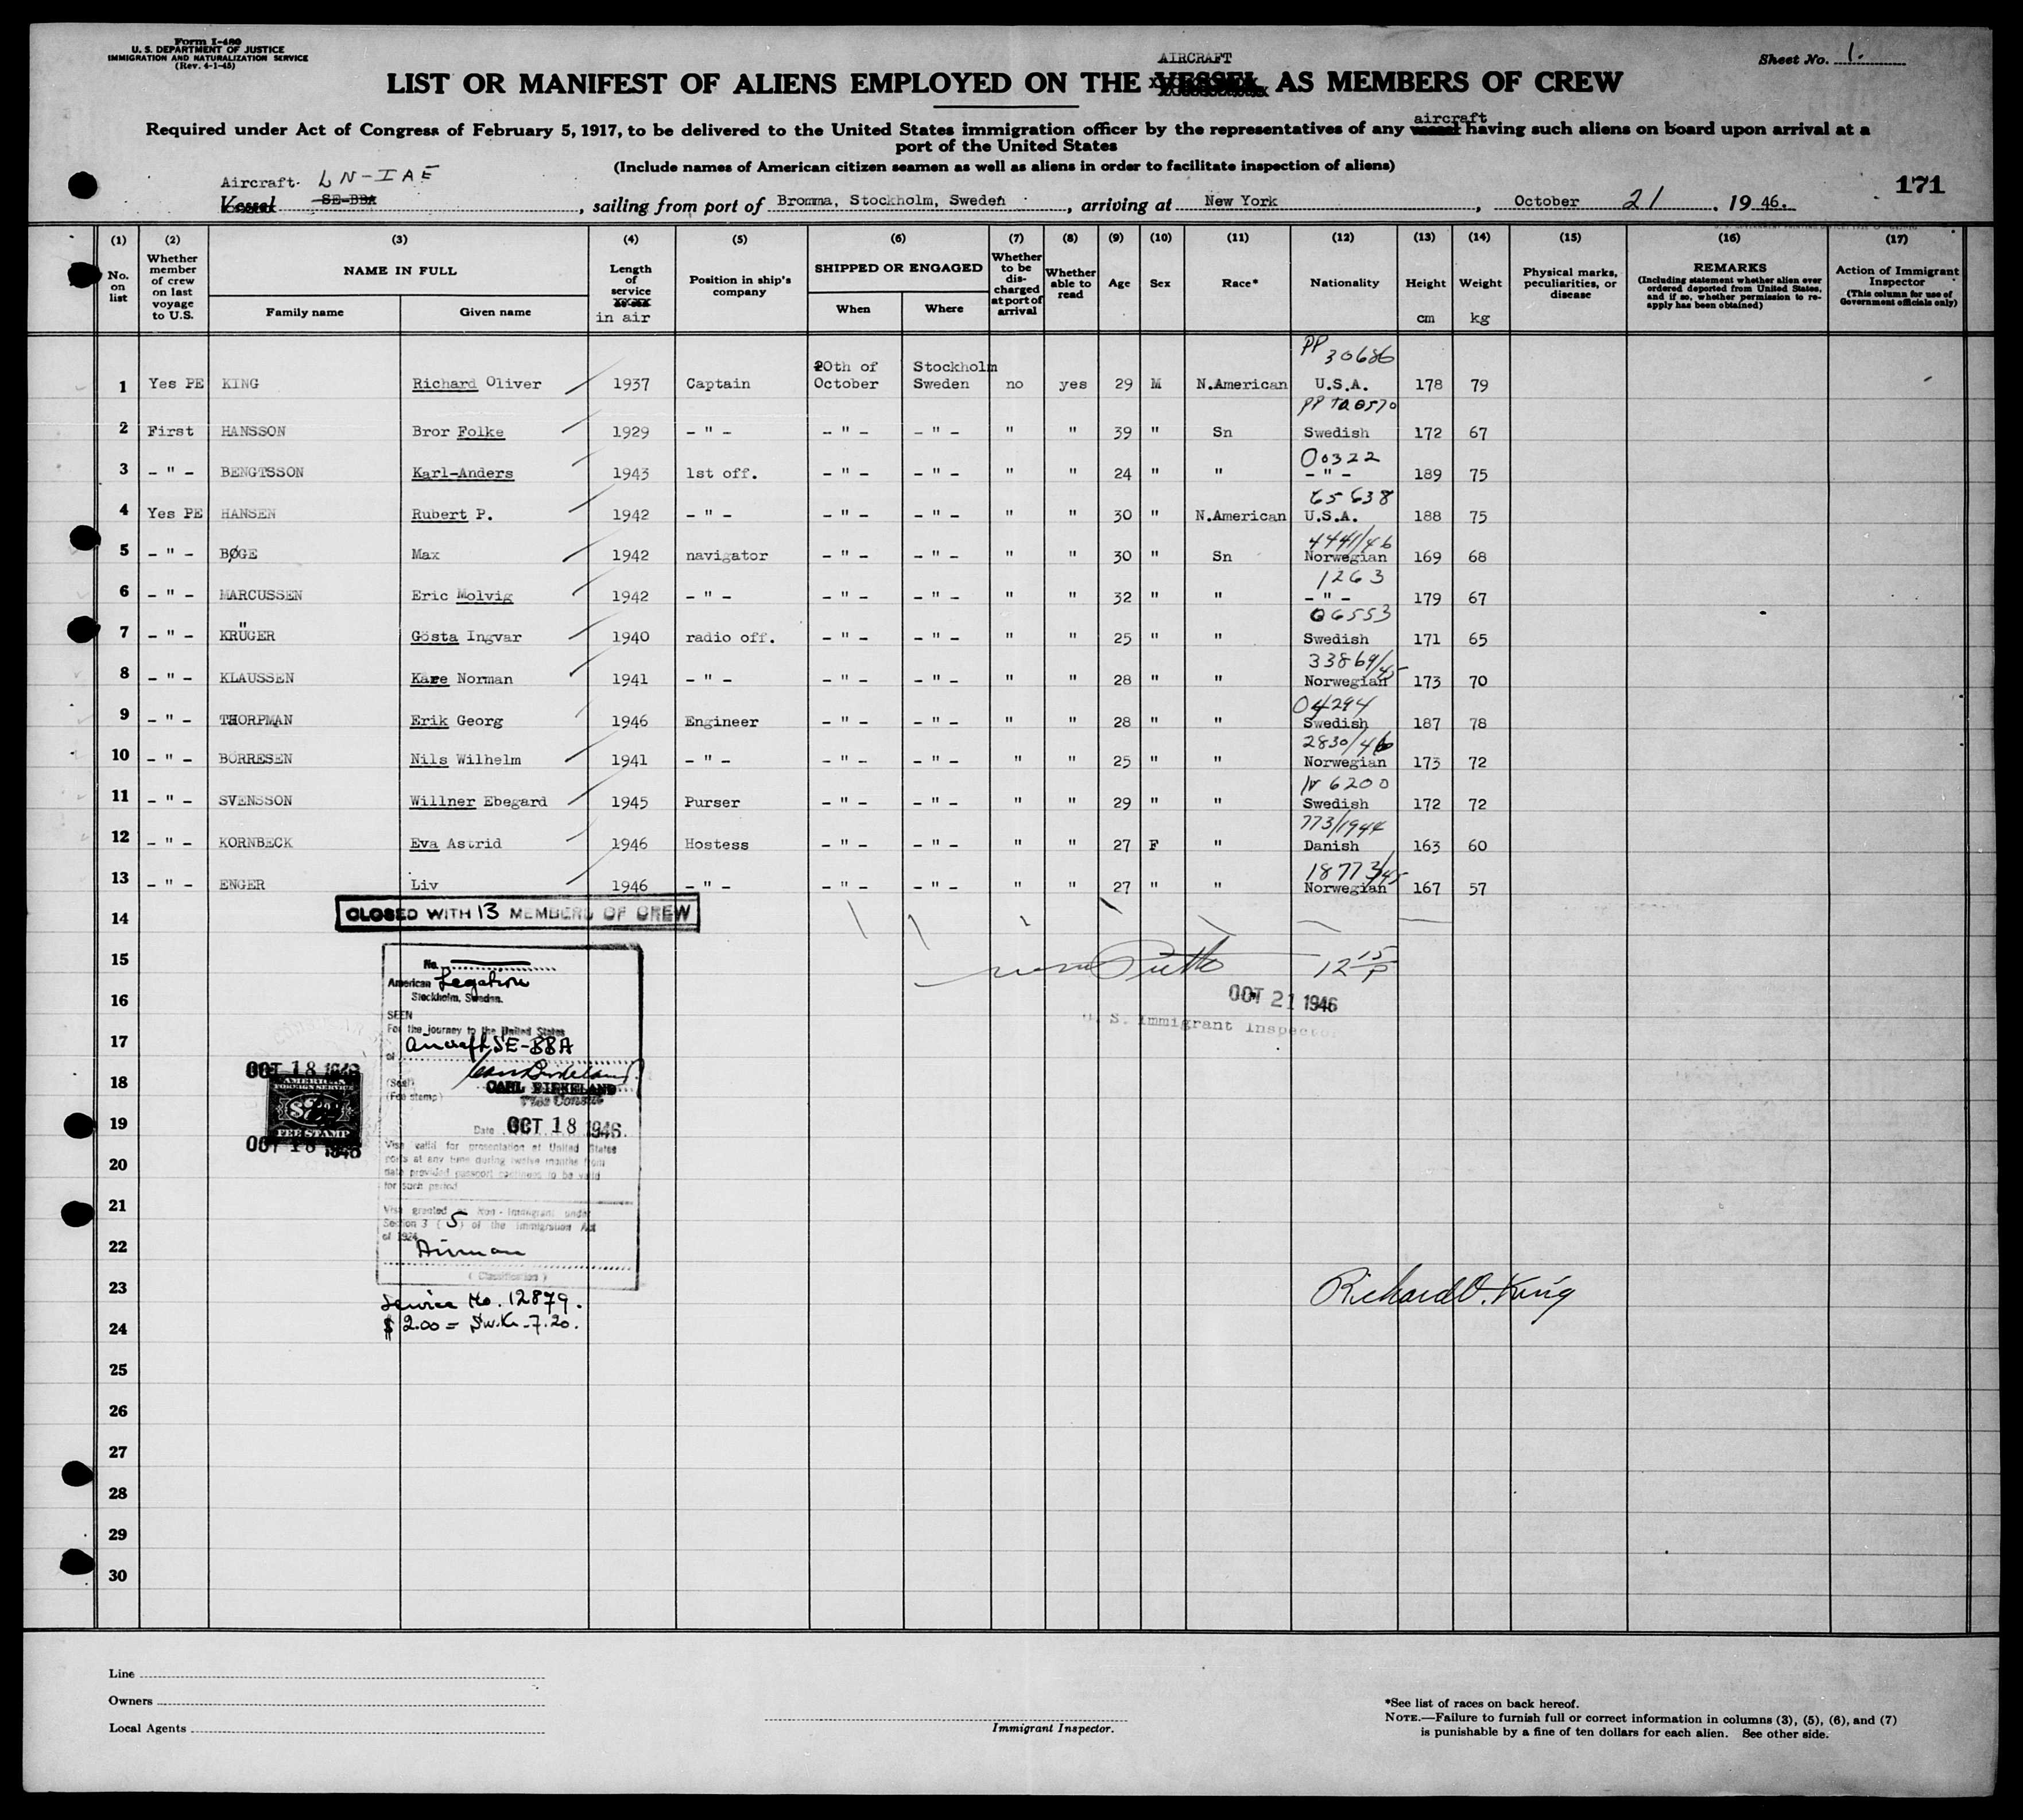 Form I-480
U. S. DEPARTMENT OF JUSTICE
IMMIGRATION AND NATURALIZATION SERVICE
(Rev. 4-1-45)
Sheet No. 1.
AIRCRAFT
LIST OR MANIFEST OF ALIENS EMPLOYED ON THE VESSEL AS MEMBERS OF CREW
aircraft
Required under Act of Congress of February 5, 1917, to be delivered to the United States immigration officer by the representatives of any vessel having such aliens on board upon arrival at a
port of the United States
(Include names of American citizen seamen as well as aliens in order to facilitate inspection of aliens)
171
Aircraft LN-IAE
Vessel SE-BBA, sailing from port of Bromma, Stockholm, Sweden, arriving at New York, October 21, 1946.
(1) (2) (3) (4) (5) (6) (7) (8) (9) (10) (11) (12) (13) (14) (15) (16) (17)
No. on list
Whether member of crew on last voyage to U.S.
NAME IN FULL
Family name
Given name
Length of service in air
Position in ship's company
SHIPPED OR ENGAGED
When
Where
Whether to be discharged at port of arrival
Whether able to read
Age
Sex
Race*
Nationality
Height cm
Weight kg
Physical marks, peculiarities, or disease
REMARKS
(Including statement whether alien ever ordered deported from United States, and if so, whether permission to reapply has been obtained)
Action of Immigrant Inspector
(This column for use of Government officials only)
PP 30686
1 Yes PE KING Richard Oliver 1937 Captain 20th of October Stockholm Sweden no yes 29 M N.American U.S.A. 178 79
2 First HANSSON Bror Folke 1929 - " - - " - - " - " " 39 " Sn Swedish 172 67
00322
3 - " - BENGTSSON Karl-Anders 1943 1st off. - " - - " - " " 24 " " - " - 189 75
65638
4 Yes PE HANSEN Rubert P. 1942 - " - - " - - " - " " 30 " N.American U.S.A. 188 75
4441/46
5 - " - BØGE Max 1942 navigator - " - - " - " " 30 " Sn Norwegian 169 68
1263
6 - " - MARCUSSEN Eric Molvig 1942 - " - - " - - " - " " 32 " " - " - 179 67
06553
7 - " - KRÜGER Gösta Ingvar 1940 radio off. - " - - " - " " 25 " " Swedish 171 65
33869/45
8 - " - KLAUSSEN Kare Norman 1941 - " - - " - - " - " " 28 " " Norwegian 173 70
04294
9 - " - THORPMAN Erik Georg 1946 Engineer - " - - " - " " 28 " " Swedish 187 78
2830/46
10 - " - BÖRRESEN Nils Wilhelm 1941 - " - - " - - " - " " 25 " " Norwegian 173 72
6200
11 - " - SVENSSON Willner Ebegard 1945 Purser - " - - " - " " 29 " " Swedish 172 72
773/1944
12 - " - KORNBECK Eva Astrid 1946 Hostess - " - - " - " " 27 F " Danish 163 60
18773/45
13 - " - ENGER Liv 1946 - " - - " - - " - " " 27 " " Norwegian 167 57
CLOSED WITH 13 MEMBERS OF CREW
14
15
16
17
18
19
20
21
22
23
24
25
26
27
28
29
30
12 15 P
OCT 21 1946
U. S. Immigrant Inspector
No.
American Legation
Stockholm, Sweden.
SEEN
For the journey to the United States
of Aircraft SE-BBA
(Seal)
CARL BIRKELAND
(Fee stamp)
Vice Consul
Date OCT 18 1946
Visa valid for presentation at United States
ports at any time during twelve months from
date provided passport continues to be valid
for such period
Visa granted as Non-Immigrant under
Section 3 (5) of the Immigration Act
of 1924
Airman
(Classification)
Service No. 12879.
$ 2.00 = Sw.Kr. 7.20.
OCT 18 1946
AMERICAN
FOREIGN SERVICE
FEE STAMP
OCT 18 1946
Richard O. King
Line
Owners
Local Agents
Immigrant Inspector.
*See list of races on back hereof.
NOTE.—Failure to furnish full or correct information in columns (3), (5), (6), and (7)
is punishable by a fine of ten dollars for each alien. See other side.